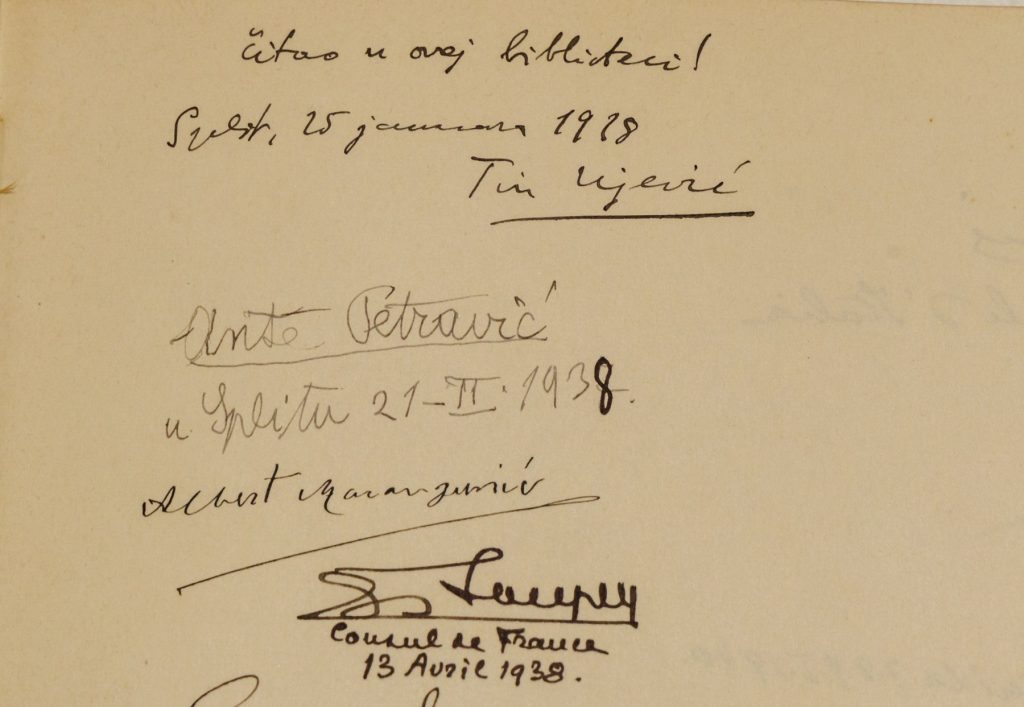 čitao u ovoj biblioteci!
Split, 25 januara 1938
Tin Ujević
Ante Petravić
u Splitu 21-II. 1938.
Albert
Consul de France
13 Avril 1938.